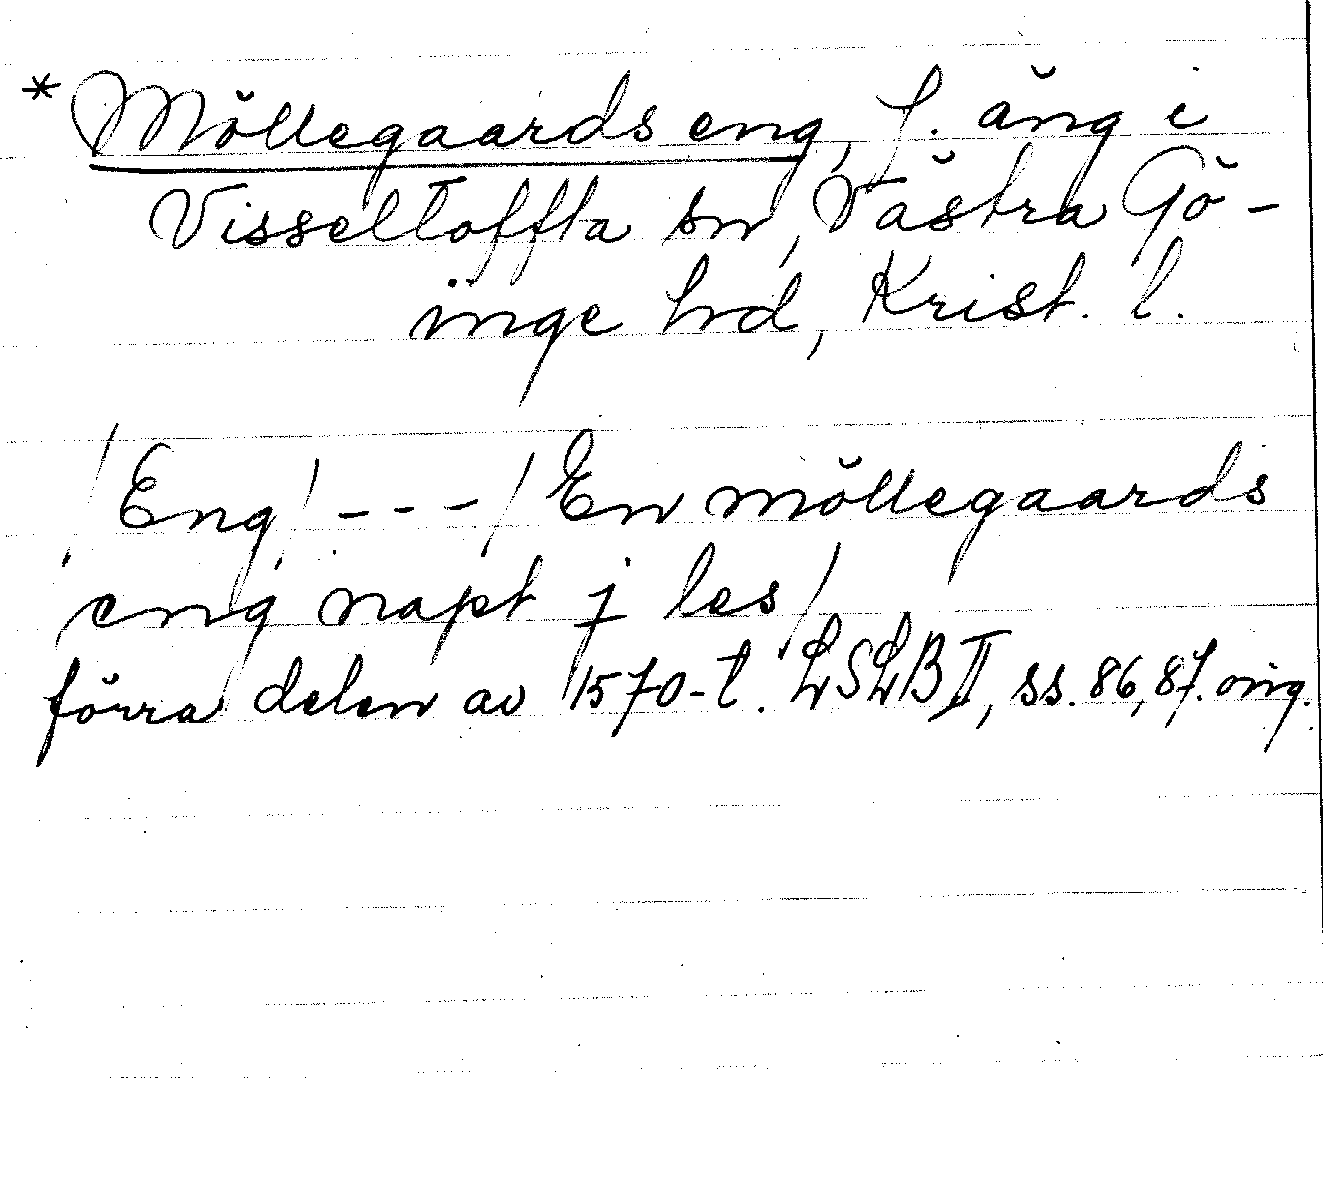 * Möllegaards eng, f. äng i
Visseltoffta sn, Västra Gö-
inge hrd, Krist. l.
/Eng/ - - - / En möllegaards
eng napt j les /
förra delen av 1570-t. LSLB II, ss. 86, 87. orig.